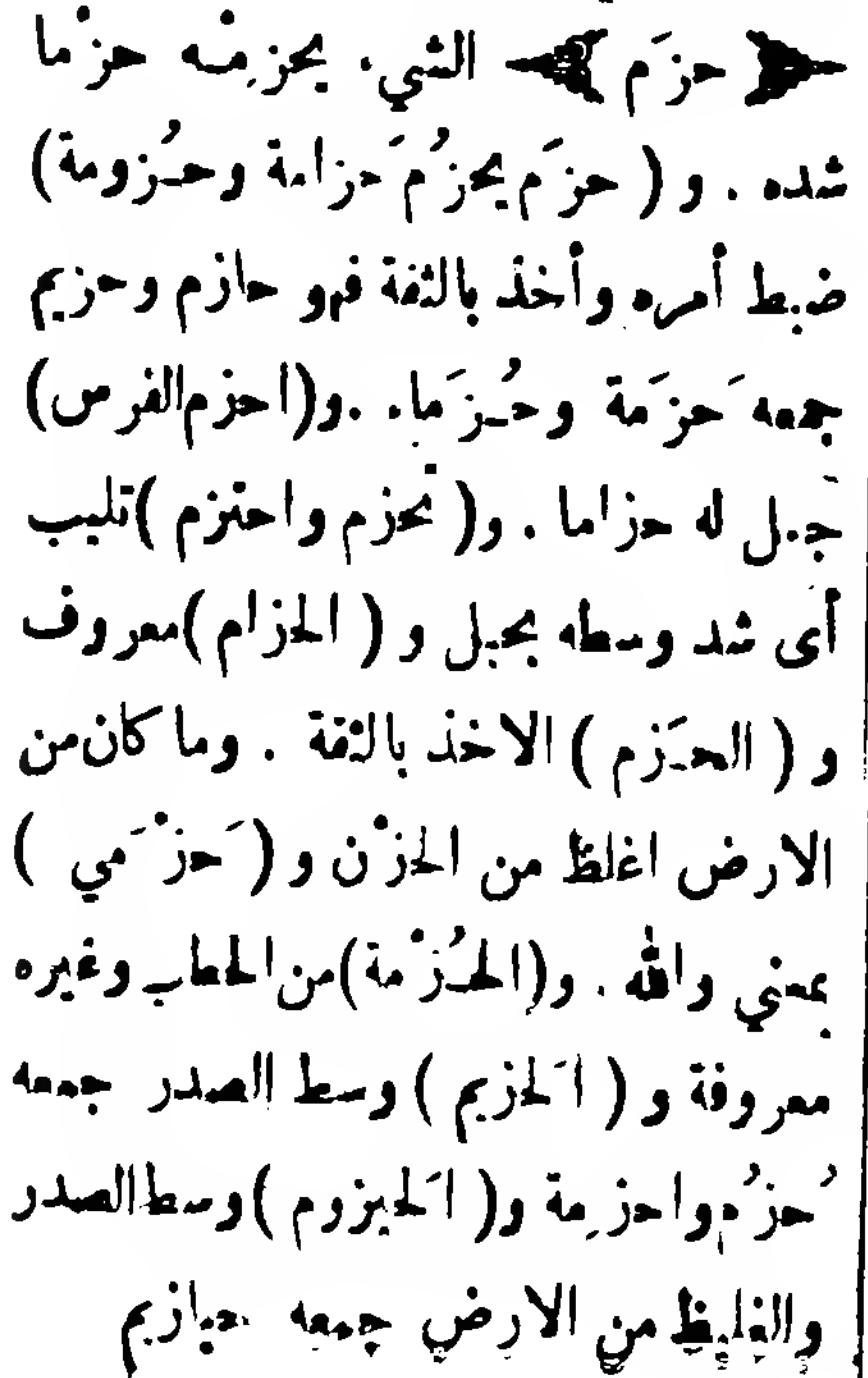 حزَم الشيء يحزِمـه حزْما
شده . و ( حزَم يحزُم َحزامة وحـُزومة)
ضبط أمره وأخذ بالثقة فهو حازم وحزيم
جمعه َحزَمة وحُـزَماء .و(احزم الفرس)
جعل له حزاما . و( تحزم واحتزم )تلبب
أى شد وسطه بحبل و ( الحزام )معروف
و ( الحـَزم ) الاخذ بالثقة . وما كان من
الارض اغلظ من الحزْن و ( َحزْ َمي )
بمعني والله . و(الحـُزْمة)من الحطب وغيره
معروفة و ( اَلحزيم ) وسط الصدر جمعه
ُحزُم واحزِمة و( اَلحيزوم )وسط الصدر
والغليظ من الارض جمعه حيازيم